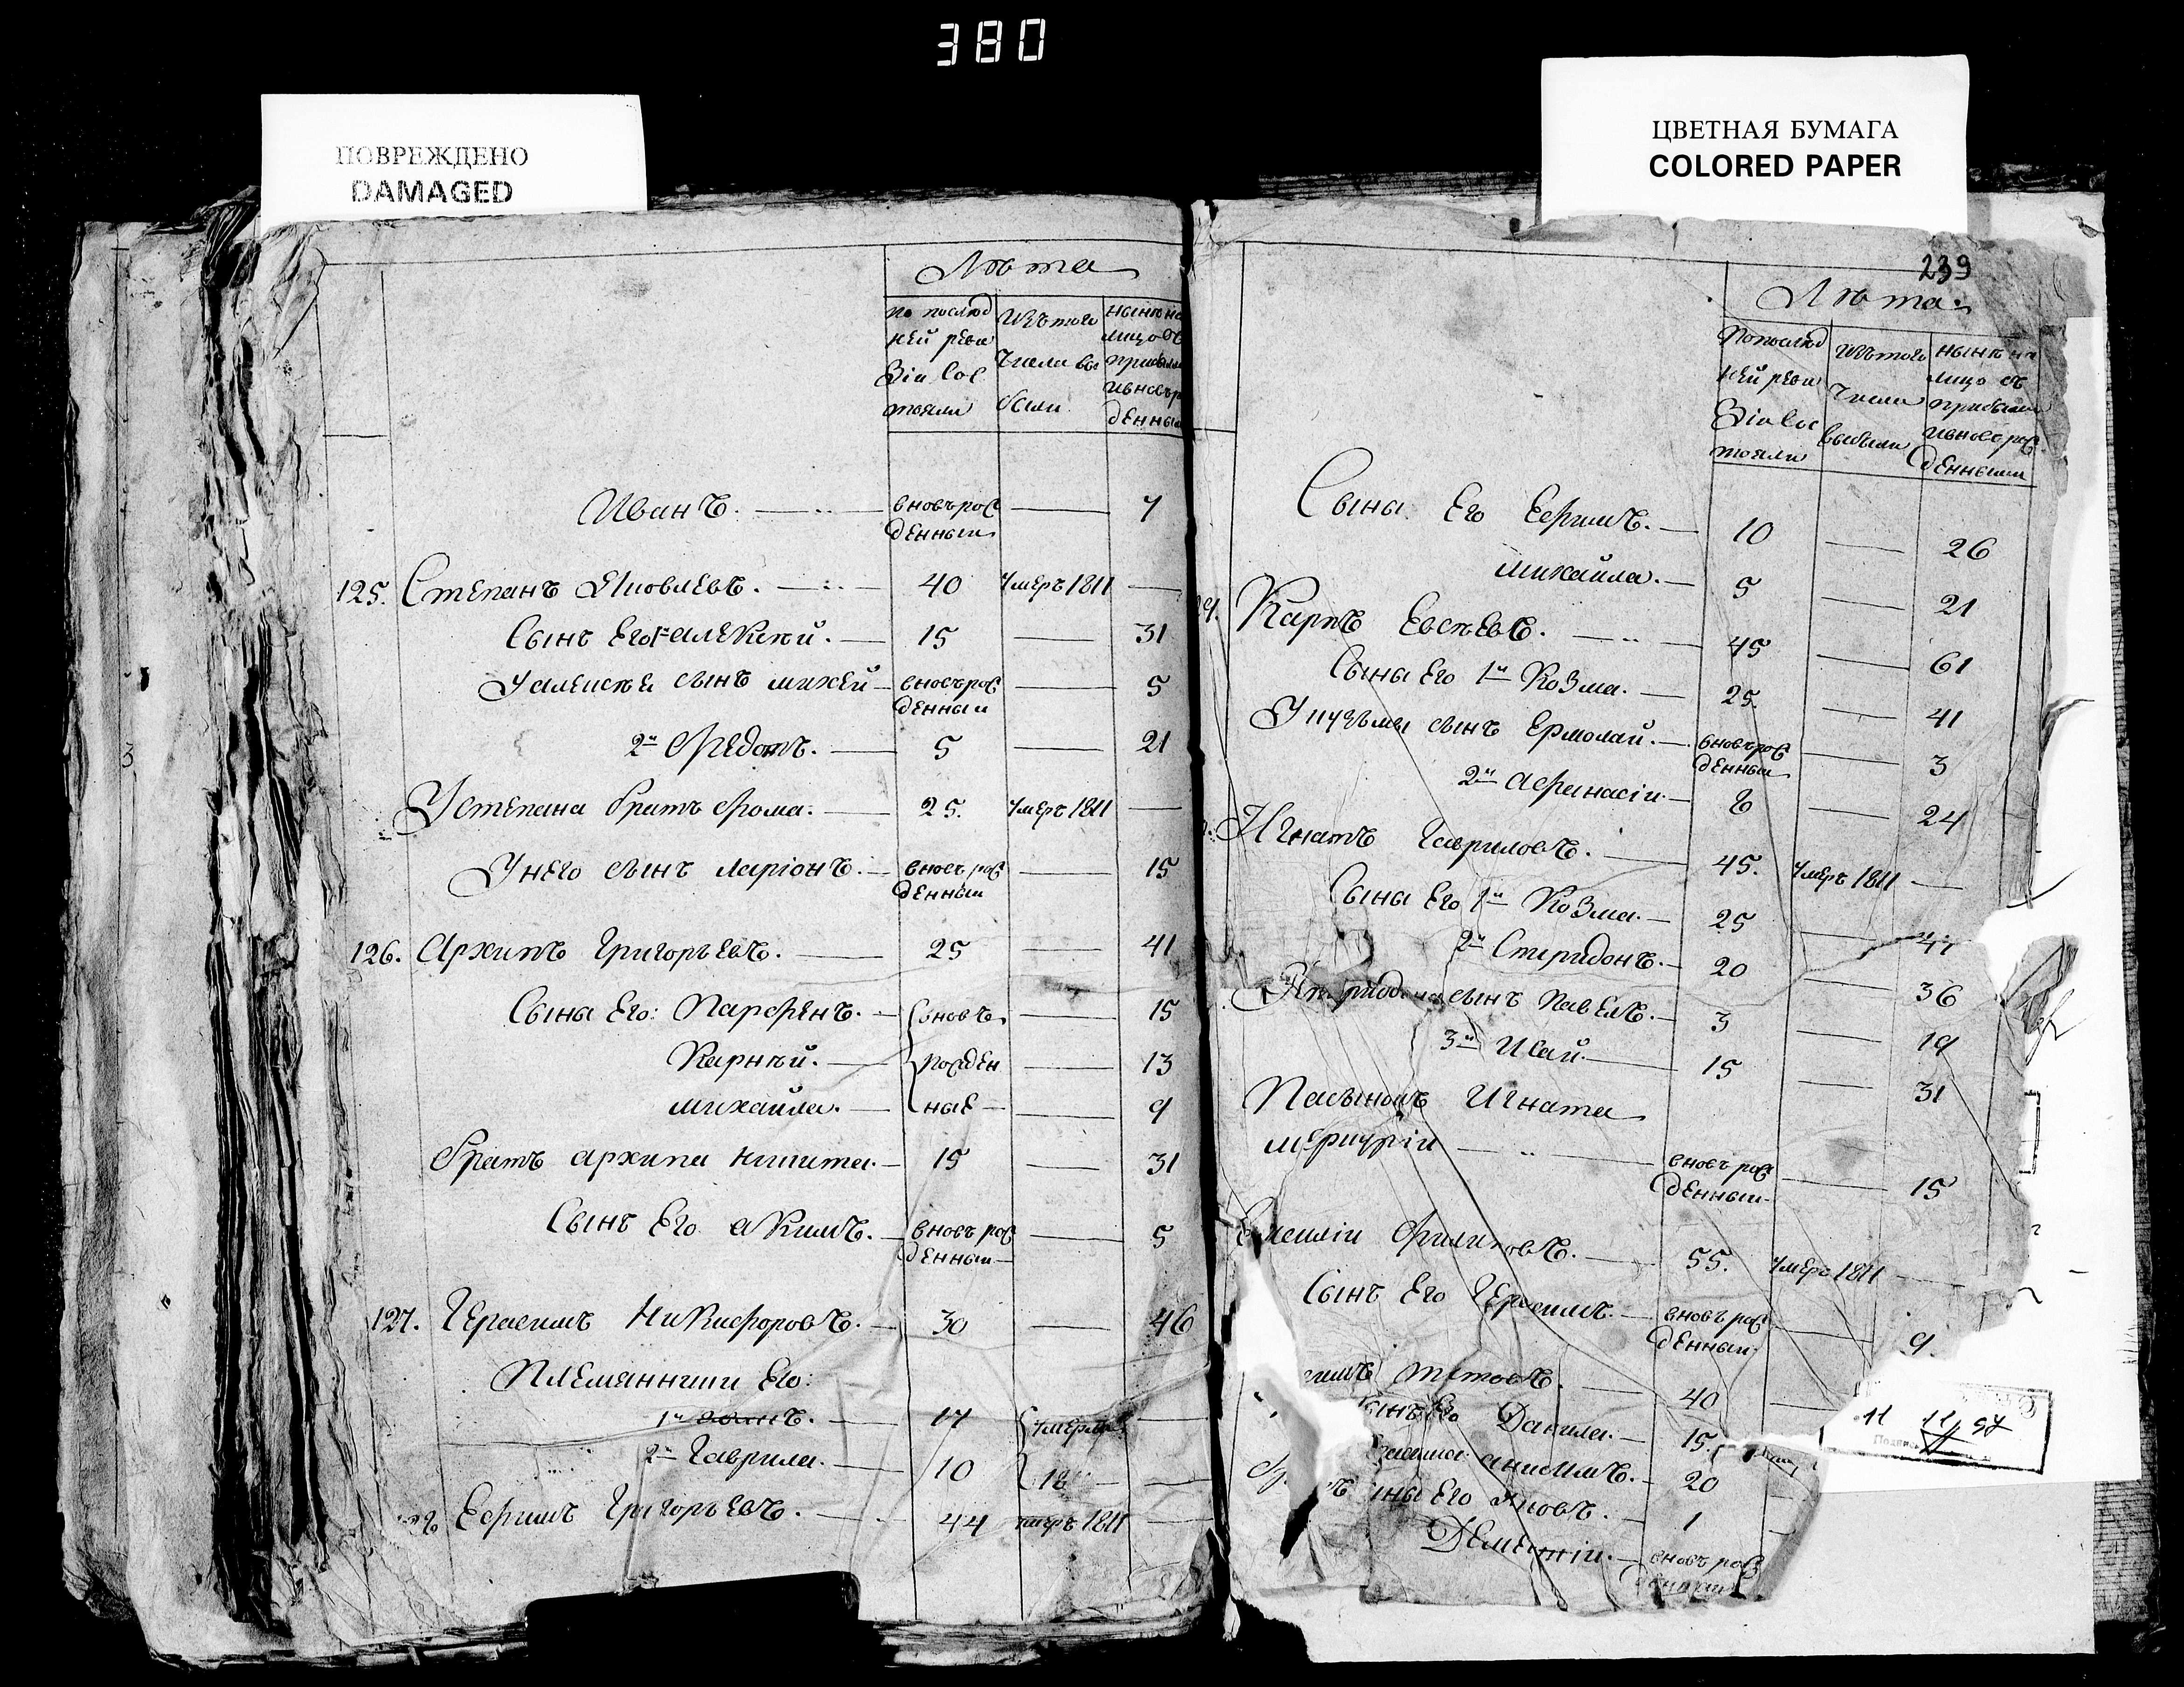 380
ПОВРЕЖДЕНО
DAMAGED
ЦВЕТНАЯ БУМАГА
COLORED PAPER
Лѣта
по послѣд ней реви зіи сос тояли
изъ того числа вы были
Иванъ. вновъ рож денный 7
125. Степанъ Яковлевъ. 40 умеръ 1811
Сынъ Его 1й Алексѣй. 15 31
У Алексѣя сынъ михей вновъ рож денный 5
2й Федотъ. 5 21
У степана братъ Фома. 25. умеръ 1811
У него сынъ ларіонъ. вновъ рож денный 15
126. Архипъ Григорьевъ. 25 41
Сына Его: Парфенъ. вновъ 15
Карнѣй. рожден 13
михайла. ные 9
братъ архипа никита. 15 31
Сынъ Его акимъ. вновъ рож денный 5
127. Герасимъ Никифоровъ. 30 46
Племянники Его:
1й Иванъ. 17 умерли
2й Гаврила. 10
Ефимъ Григорьевъ. 44 умеръ 1811
239
Лѣта.
По послѣд ней реви зіи сос тояли
изъ того числа выбыли
нынѣ на лицо съ прибылыми и вновъ рож денными
Сына Его Ефимъ. 10 26
михайла. 5 21
Карпъ Евсѣевъ. 45 61
Сына Его 1й Козма. 25. 41
У кузьмы сынъ Ермолай. вновъ рож денный 3
2й Афанасіи. 8 24
Игнатъ Гавриловъ. 45. умеръ 1811
Сына Его 1й Козма. 25 41
2й Спиридонъ. 20 36
сынъ Павелъ. 3 19
3й Исай. 15 31
Пасынокъ Игната
меркуріи вновъ рож денный 15
Филиповъ. 55. умеръ 1811
Сынъ Его Герасимъ. вновъ рож денный 9.
Титовъ. 40
Его Данила. 15.
анисимъ. 20
Его Яковъ. 1
Дементіи. вновъ рож денный
11 11 97